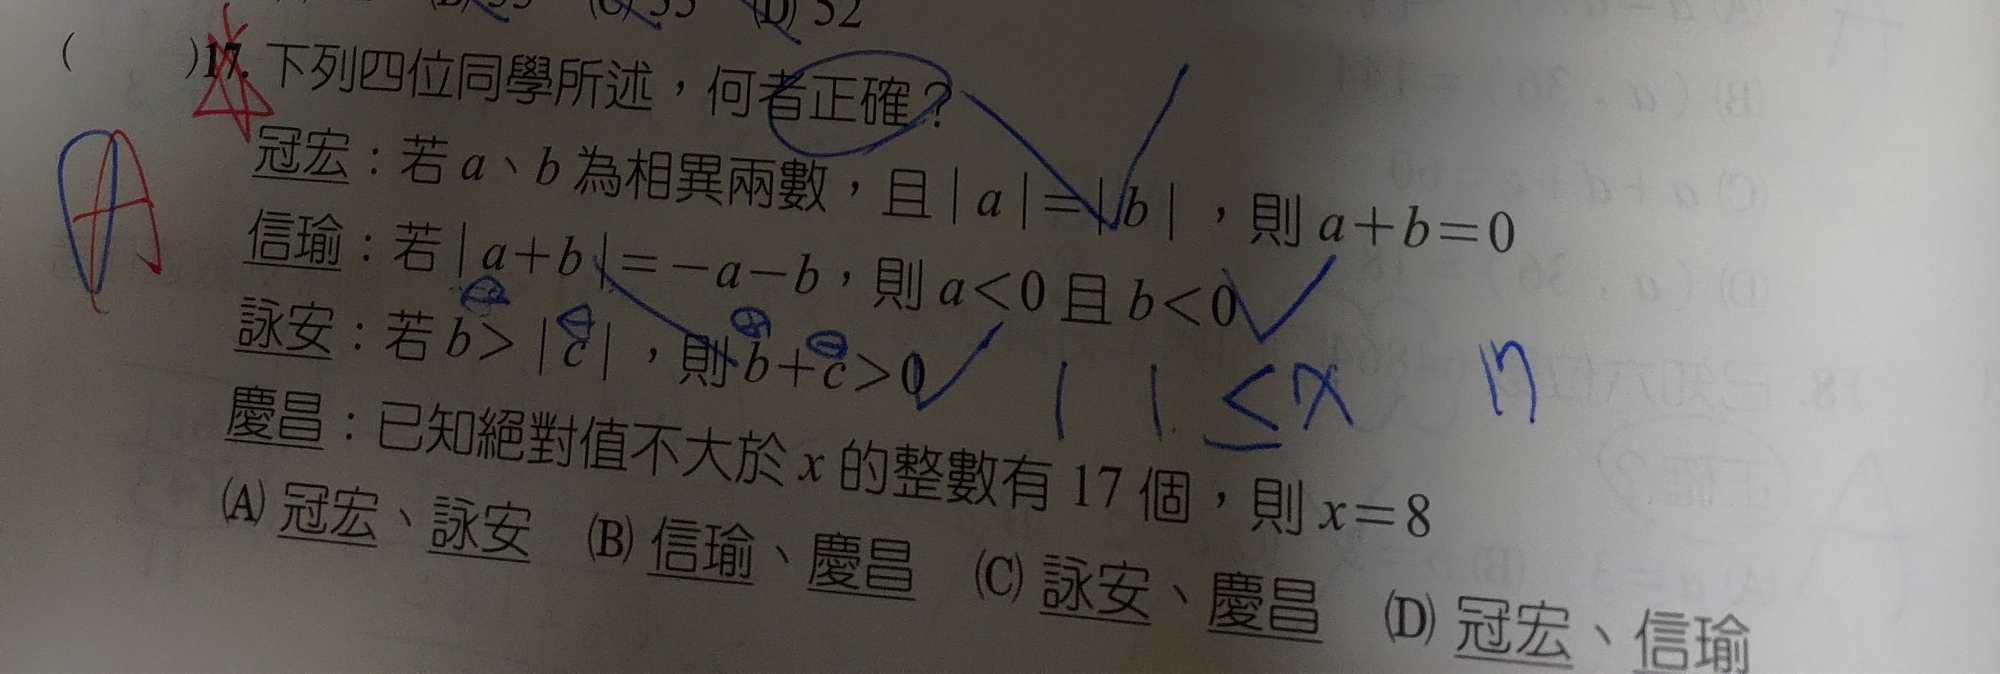 (B) 53 (C) 55 (D) 52
( )17. 下列四位同學所述，何者正確？
冠宏：若 a、b 為相異兩數，且 | a |=| b |，則 a+b=0
信瑜：若 | a+b |=-a-b，則 a<0 且 b<0
詠安：若 b> | c |，則 b+c>0
慶昌：已知絕對值不大於 x 的整數有 17 個，則 x=8
(A) 冠宏、詠安 (B) 信瑜、慶昌 (C) 詠安、慶昌 (D) 冠宏、信瑜
A
| | ≤x 17